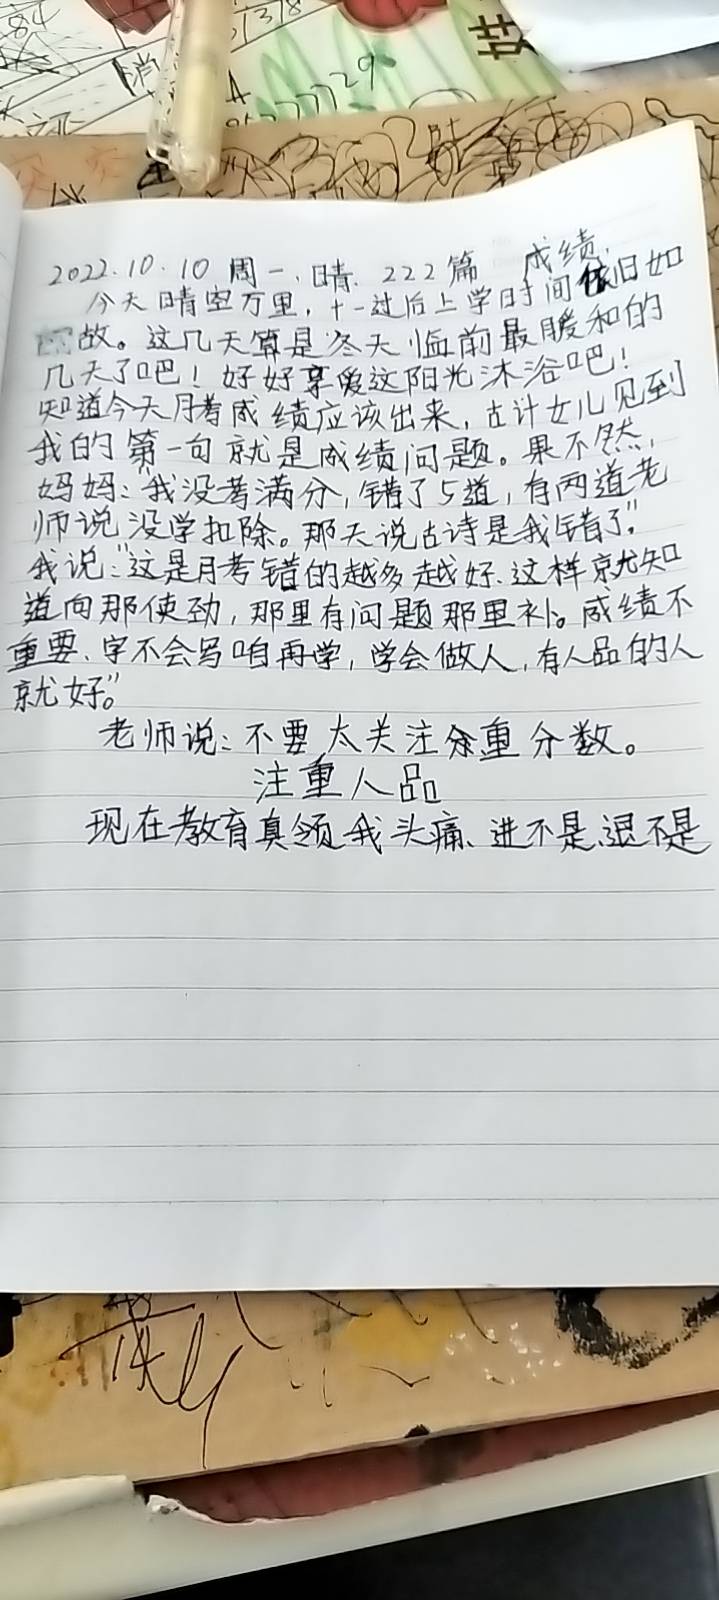 2022.10.10 周一、晴. 222篇 成绩.
今天晴空万里，十一过后上学时间依旧如
故。这几天算是冬天临前最暖和的
几天了吧！好好享爱这阳光沐浴吧！
知道今天月考成绩应该出来，古计女儿见到
我的第一句就是成绩问题。果不然，
妈妈：“我没考满分，错了5道，有两道老
师说没学扣除。那天说古诗是我错了”。
我说：“这是月考错的越多越好、这样就知
道向那使劲，那里有问题那里补。成绩不
重要、字不会写咱再学，学会做人，有人品的人
就好。”
老师说：不要太关注余重分数。
注重人品
现在教育真领我头痛、进不是、退不是